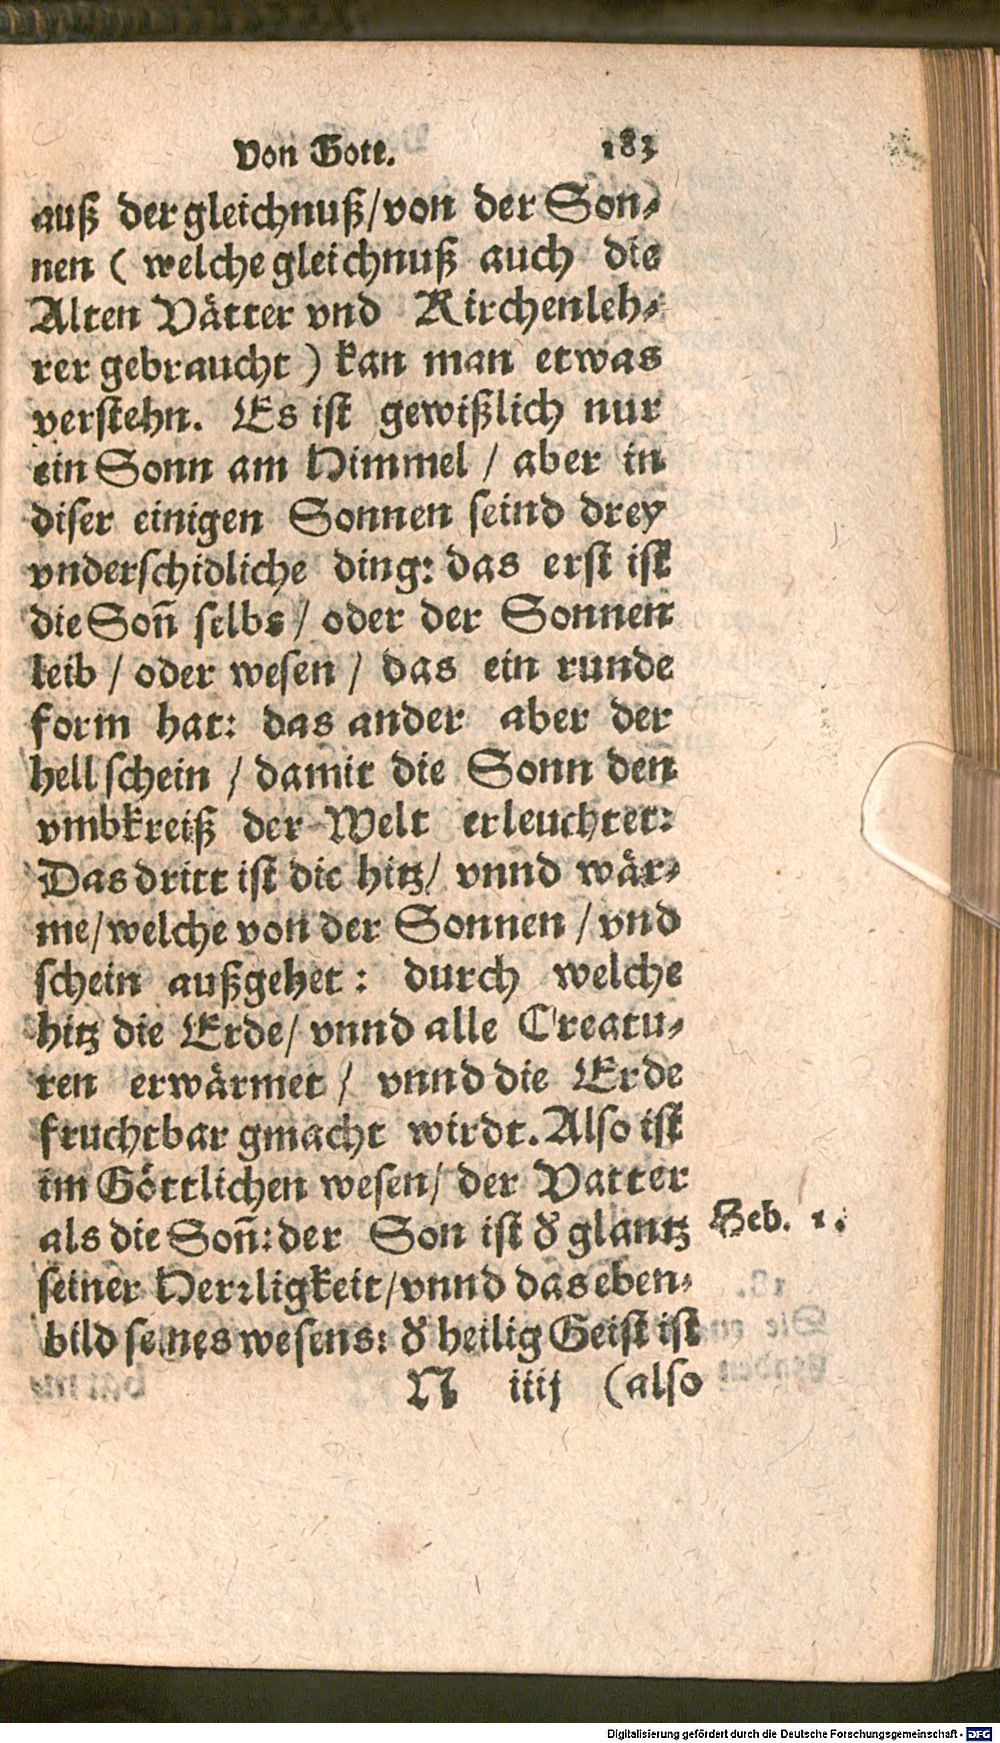 Von Gott. 183
auß der gleichnuß/von der Son-
nen ( welche gleichnuß auch die
Alten Vätter vnd Kirchenleh-
rer gebraucht ) kan man etwas
verstehn. Es ist gewißlich nur
ein Sonn am Himmel / aber in
diser einigen Sonnen seind drey
vnderschidliche ding: das erst ist
die Soñ selbs / oder der Sonnen
leib / oder wesen / das ein runde
form hat: das ander aber der
hell schein / damit die Sonn den
vmbkreiß der Welt erleuchtet:
Das dritt ist die hitz/ vnnd wär-
me/welche von der Sonnen / vnd
schein außgehet : durch welche
hitz die Erde/ vnnd alle Creatu-
ren erwärmet / vnnd die Erde
fruchtbar gmacht wirdt. Also ist
im Göttlichen wesen/ der Vatter
als die Soñ: der Son ist d' glantz Heb. 1.
seiner Herrligkeit/vnnd das eben-
bild seines wesens: d' heilig Geist ist
N iiij (also
Digitalisierung gefördert durch die Deutsche Forschungsgemeinschaft - DFG